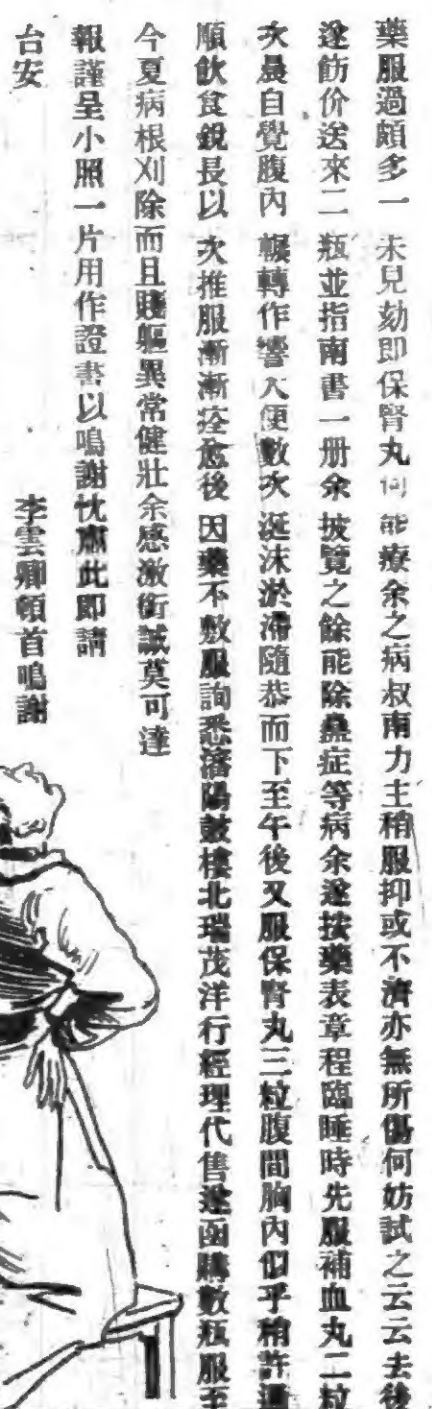 藥服過頗多一未見効即保腎丸何能療余之病叔南力主稍服抑或不濟亦無所傷何妨試之云云去後
遂飭价送來二瓶並指南書一册余披覽之餘能除蠱症等病余遂按藥表章程臨睡時先服補血丸二粒
次晨自覺腹內輾轉作響大便數次涎沫淤滯隨恭而下至午後又服保腎丸三粒腹間胸內似乎稍許通
順飲食銳長以次推服漸漸痊愈後因藥不敷服詢悉瀋陽鼓樓北瑞茂洋行經理代售遂函購數瓶服至
今夏病根刈除而且賤軀異常健壯余感激銜誠莫可達
報謹呈小照一片用作證書以鳴謝忱肅此即請
台安
李雲卿頓首鳴謝